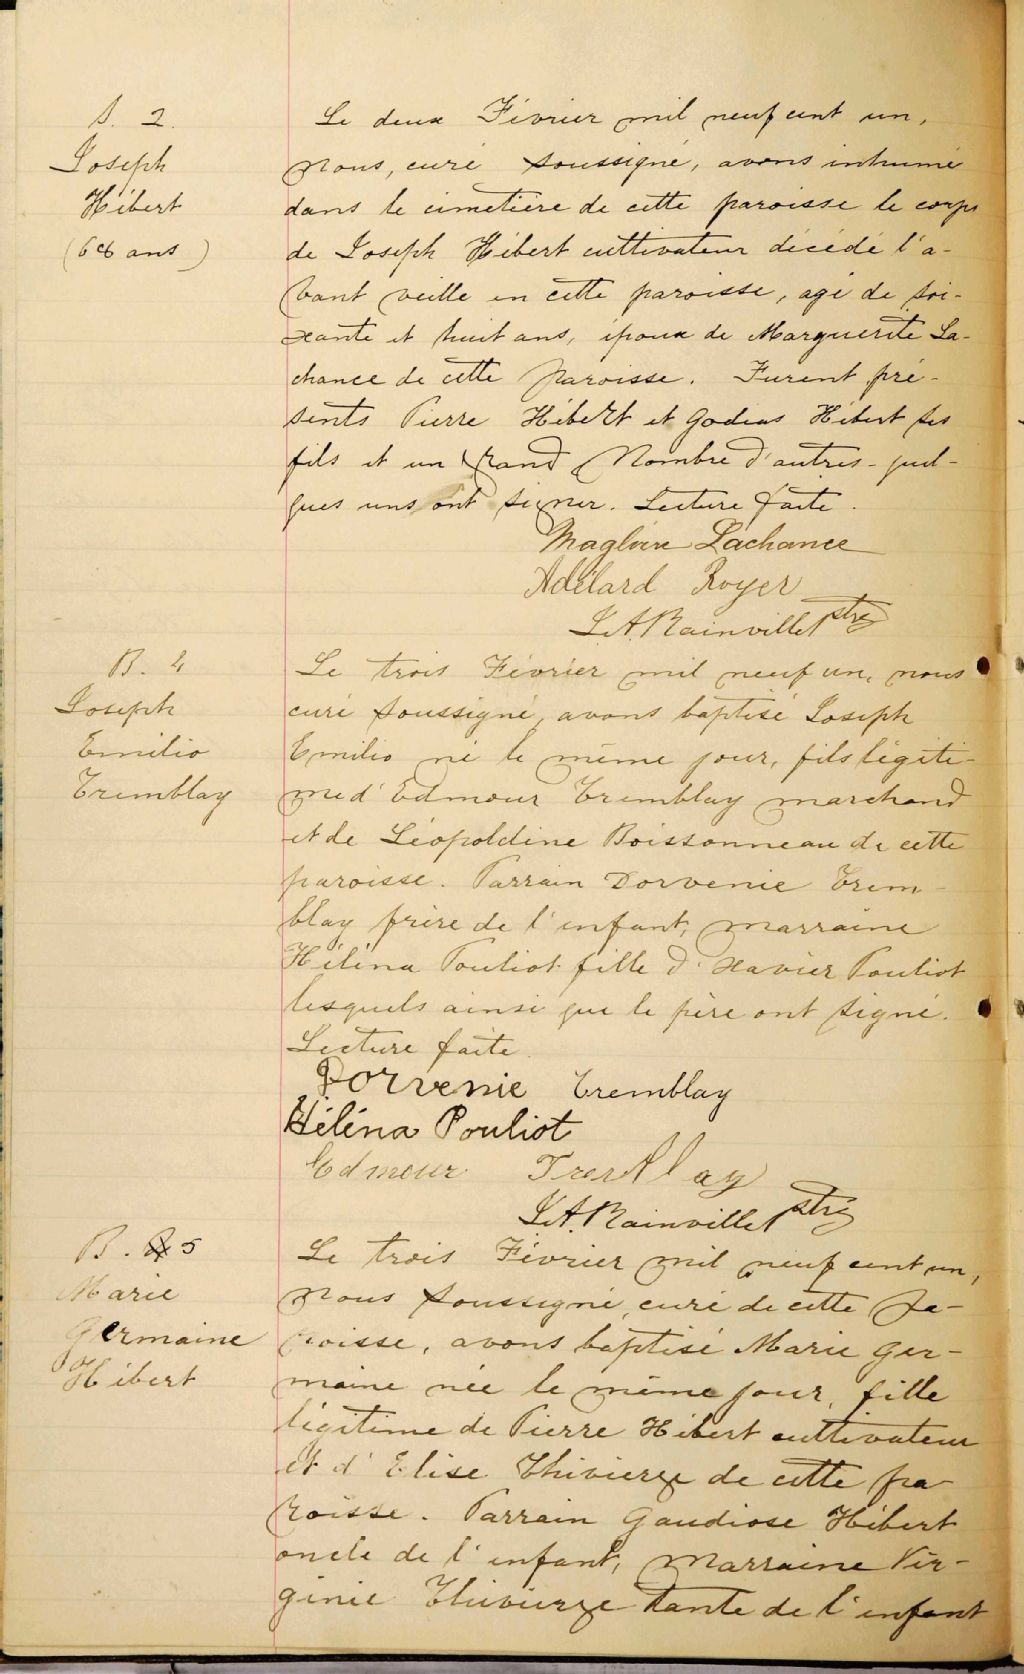 S. 2.
Joseph
Hébert
(68 ans)
Le deux Février mil neuf cent un,
nous, curé soussigné, avons inhumé
dans le cimetière de cette paroisse le corps
de Joseph Hébert cultivateur décédé l'a-
vant veille en cette paroisse, agé de soi-
xante et huit ans, époux de Marguerite La-
chance de cette paroisse. Furent pré-
sents Pierre Hébert et Godias Hébert ses
fils et un grand Nombre d'autres - quel-
ques uns ont signer. Lecture faite.
Magloire Lachance
Adélard Royer
J.A. Rainville ptre
B. 4
Joseph
Emilio
Tremblay
Le trois Février mil neuf un, nous
curé soussigné, avons baptisé Joseph
Emilio né le même jour, fils légiti-
me d'Edmour Tremblay marchand
et de Léopoldine Boissonneau de cette
paroisse. Parrain Dorvenie Trem-
blay frère de l'enfant, marraine
Héléna Pouliot fille d'Xavier Pouliot
lesquels ainsi que le père ont signé.
Lecture faite.
Dorvenie Tremblay
Héléna Pouliot
Edmour Tremblay
J.A. Rainville ptre
B. 5
Marie
Germaine
Hébert
Le trois Février mil neuf cent un,
nous soussigné, curé de cette pa-
roisse, avons baptisé Marie Ger-
maine née le même jour, fille
légitime de Pierre Hébert cultivateur
et d'Elise Thivierge de cette pa-
roisse. Parrain Gaudiose Hébert
oncle de l'enfant, marraine Vir-
ginie Thivierge tante de l'enfant